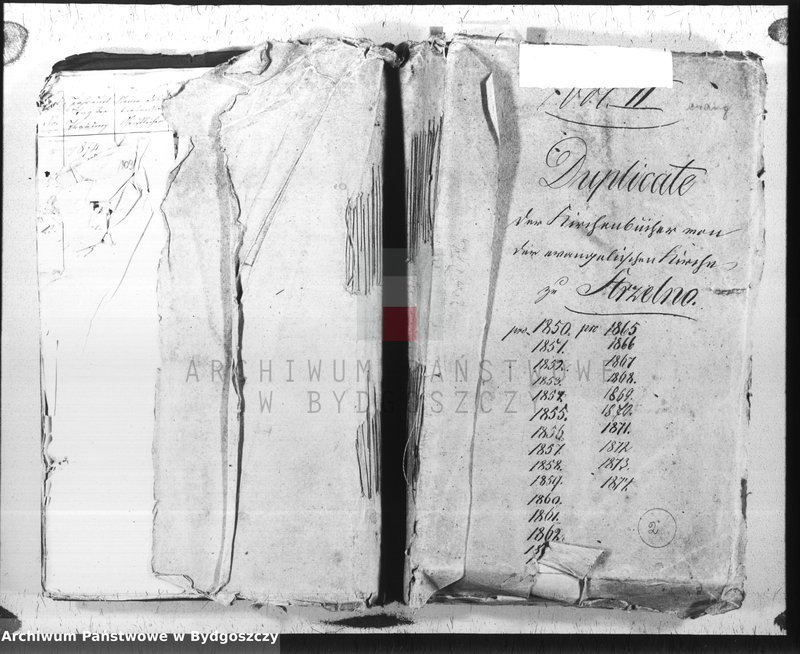 Vol. II
evang
Duplicate
der Kirchenbücher von
der evangelischen Kirche
zu Strzelno.
pro. 1850. pro 1865
1851. 1866
1852. 1867
1853. 1868.
1854. 1869.
1855. 1870.
1856. 1871.
1857. 1872
1858. 1873.
1859. 1874.
1860.
1861.
1862.
2
ARCHIWUM PAŃSTWOWE
W BYDGOSZCZY
Archiwum Państwowe w Bydgoszczy